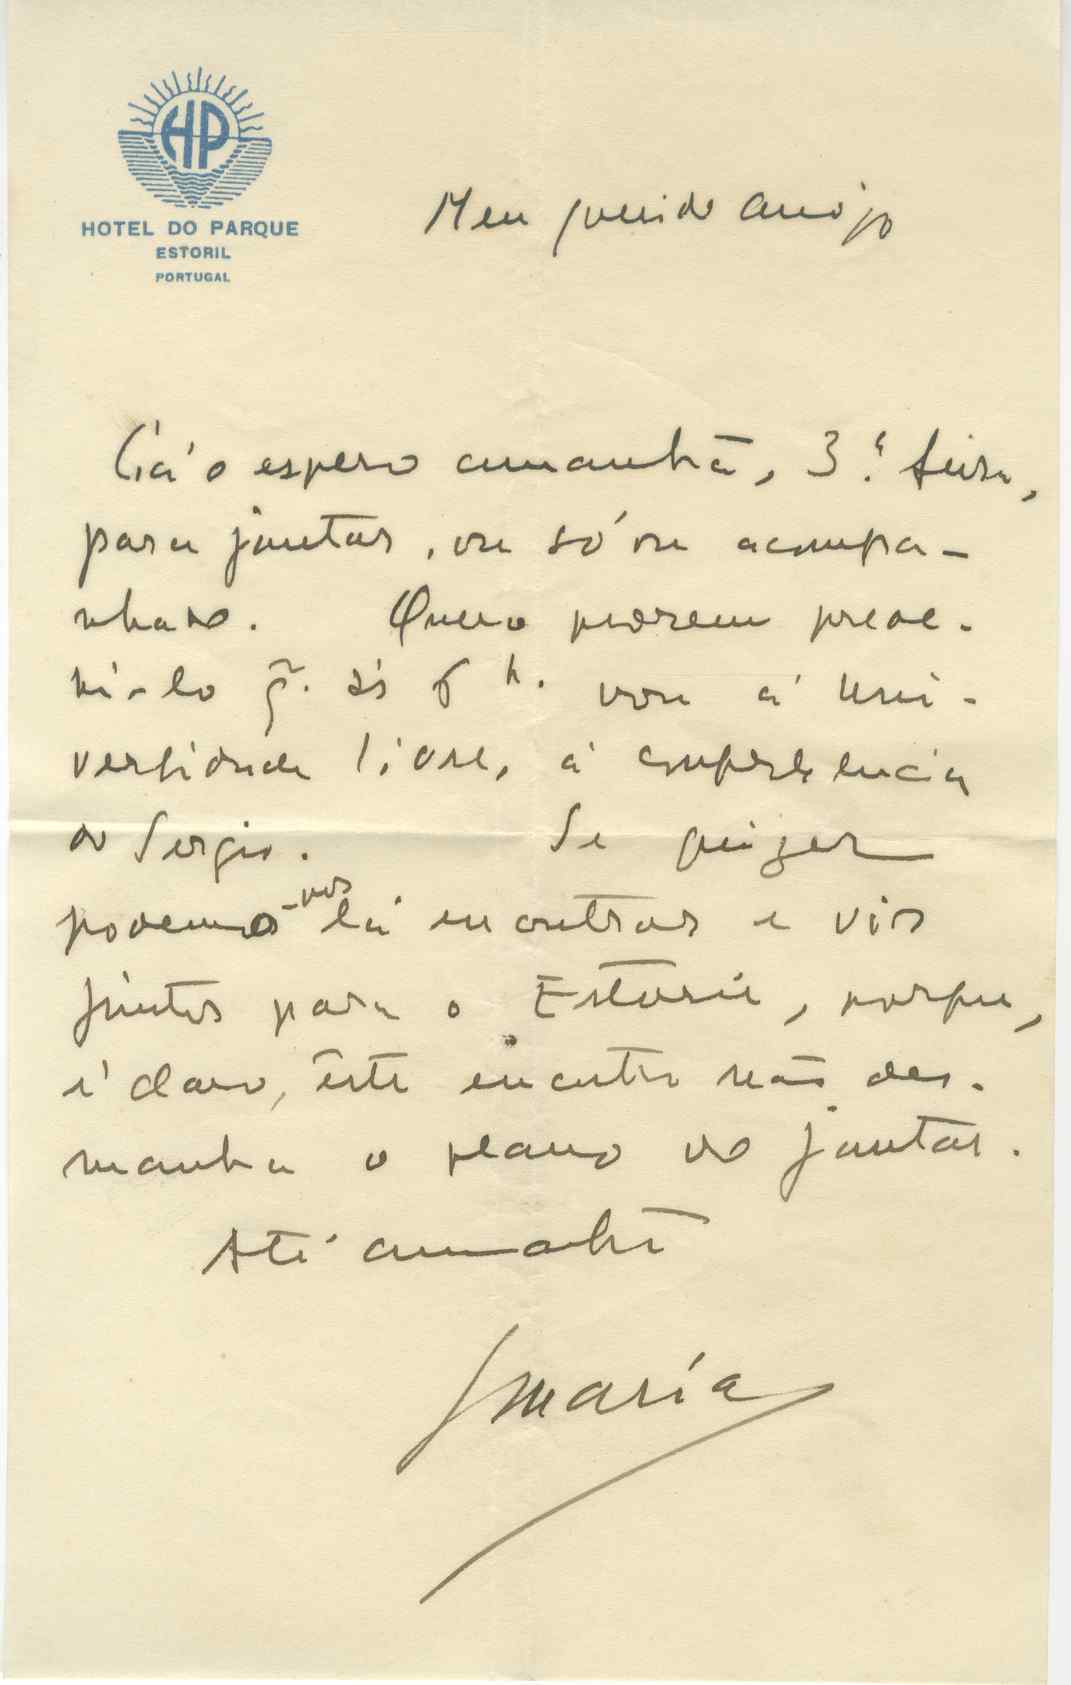 HP
HOTEL DO PARQUE
ESTORIL
PORTUGAL
Meu querido amigo
Cá o espero amanhã, 3.ª feira,
para jantar, ou só ou acompa-
nhado. Quero porem preve-
ni-lo q̃. ás 6 h. vou á Uni-
versidade livre, á conferencia
do Sergio. Se quizer
podemos-nos lá encontrar e vir
juntos para o Estoril, porque,
é claro, êste encontro não des-
mancha o plano do jantar.
Até amanhã
JMaria